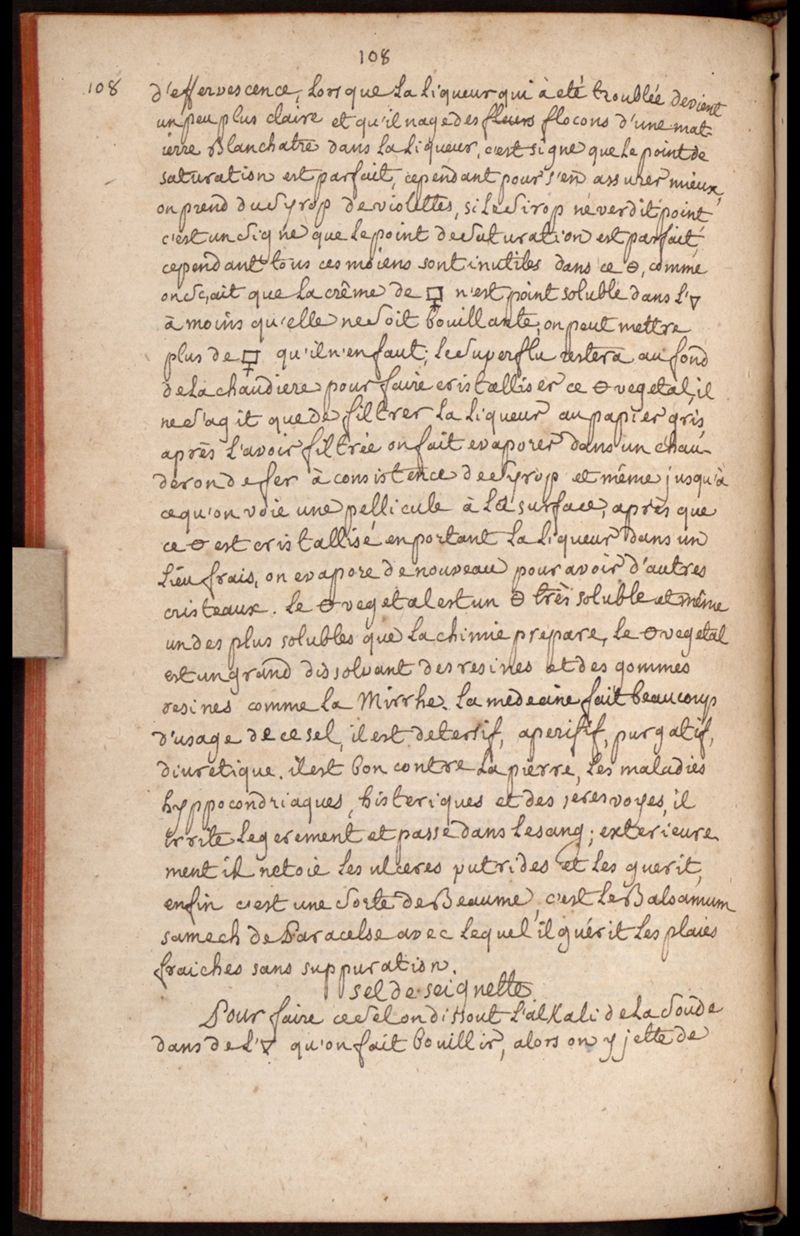 108
108 d'effervescence, Lorsque La Liqueur qui à eté troublée devient
un peu plus claire et qu'il nage des fleurs flocons d'une mat
ierre Blanchatre dans La Liqueur, c'est signe que Le point de
saturation est parfait, cependant pour s'en assurer mieux,
on prend du Syrop de violettes, si Le Sirop ne verdit point
c'est un Signe que Le point de Saturation est parfait,
cependant tous ces moiens sont inutiles dans ce 🜔, comme
on Sçait que La crême de 🜿 n'est point soluble dans L'🜄
à moins qu'elle ne Soit bouillante, on peut mettre
plus de 🜿 qu'il n'en faut; Le Superflu restera au fond
de La chaudiere pour faire cristalliser ce 🜔 vegetal, il
ne S'agit que de filtrer La Liqueur au papier gris,
après L'avoir filtrée on fait evaporer dans un chau
deron de fer à consistence de Syrop et même jusqu'à
ce qu'on voie une pellicule à La surface, après que
ce 🜔 est cristallisé en portant La Liqueur dans un
Lieu frais, on evapore de nouveau pour avoir d'autres
cristeaux. Le 🜔 vegetal est un 🜔 très soluble et même
un des plus solubles que La chimie prepare, Le 🜔 vegetal
est un grand dissolvant des resines et des gommes
resines comme La Mirrhe. La medecine fait beaucoup
d'usage de ce sel, il est detersif, aperitif, purgatif,
diuretique. il est bon contre La pierre, Les maladies
hyppocondriaques, histeriques et des 1eres voyes, il
irrite Legerement et passe dans Le sang; exterieure
ment il netoie Les ulceres putrides et Les guerit,
enfin c'est une Sorte de Beaume, c'est Le Balsamum
samech de Paracelse avec Lequel il guérit Les plaies
fraiches sans suppuration.
sel de seignette
Pour faire ce Sel on dissout L'alKali de La Soude
dans de L'🜄 qu'on fait bouillir, alors on y jette de